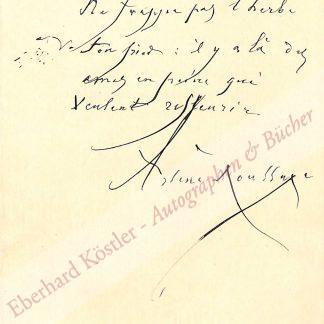 Ne frappe pas l'herbe
de ton pied : il y a là des
âmes en peine qui
veulent refleurir
Arsène Houssaye
Eberhard Köstler - Autographen & Bücher